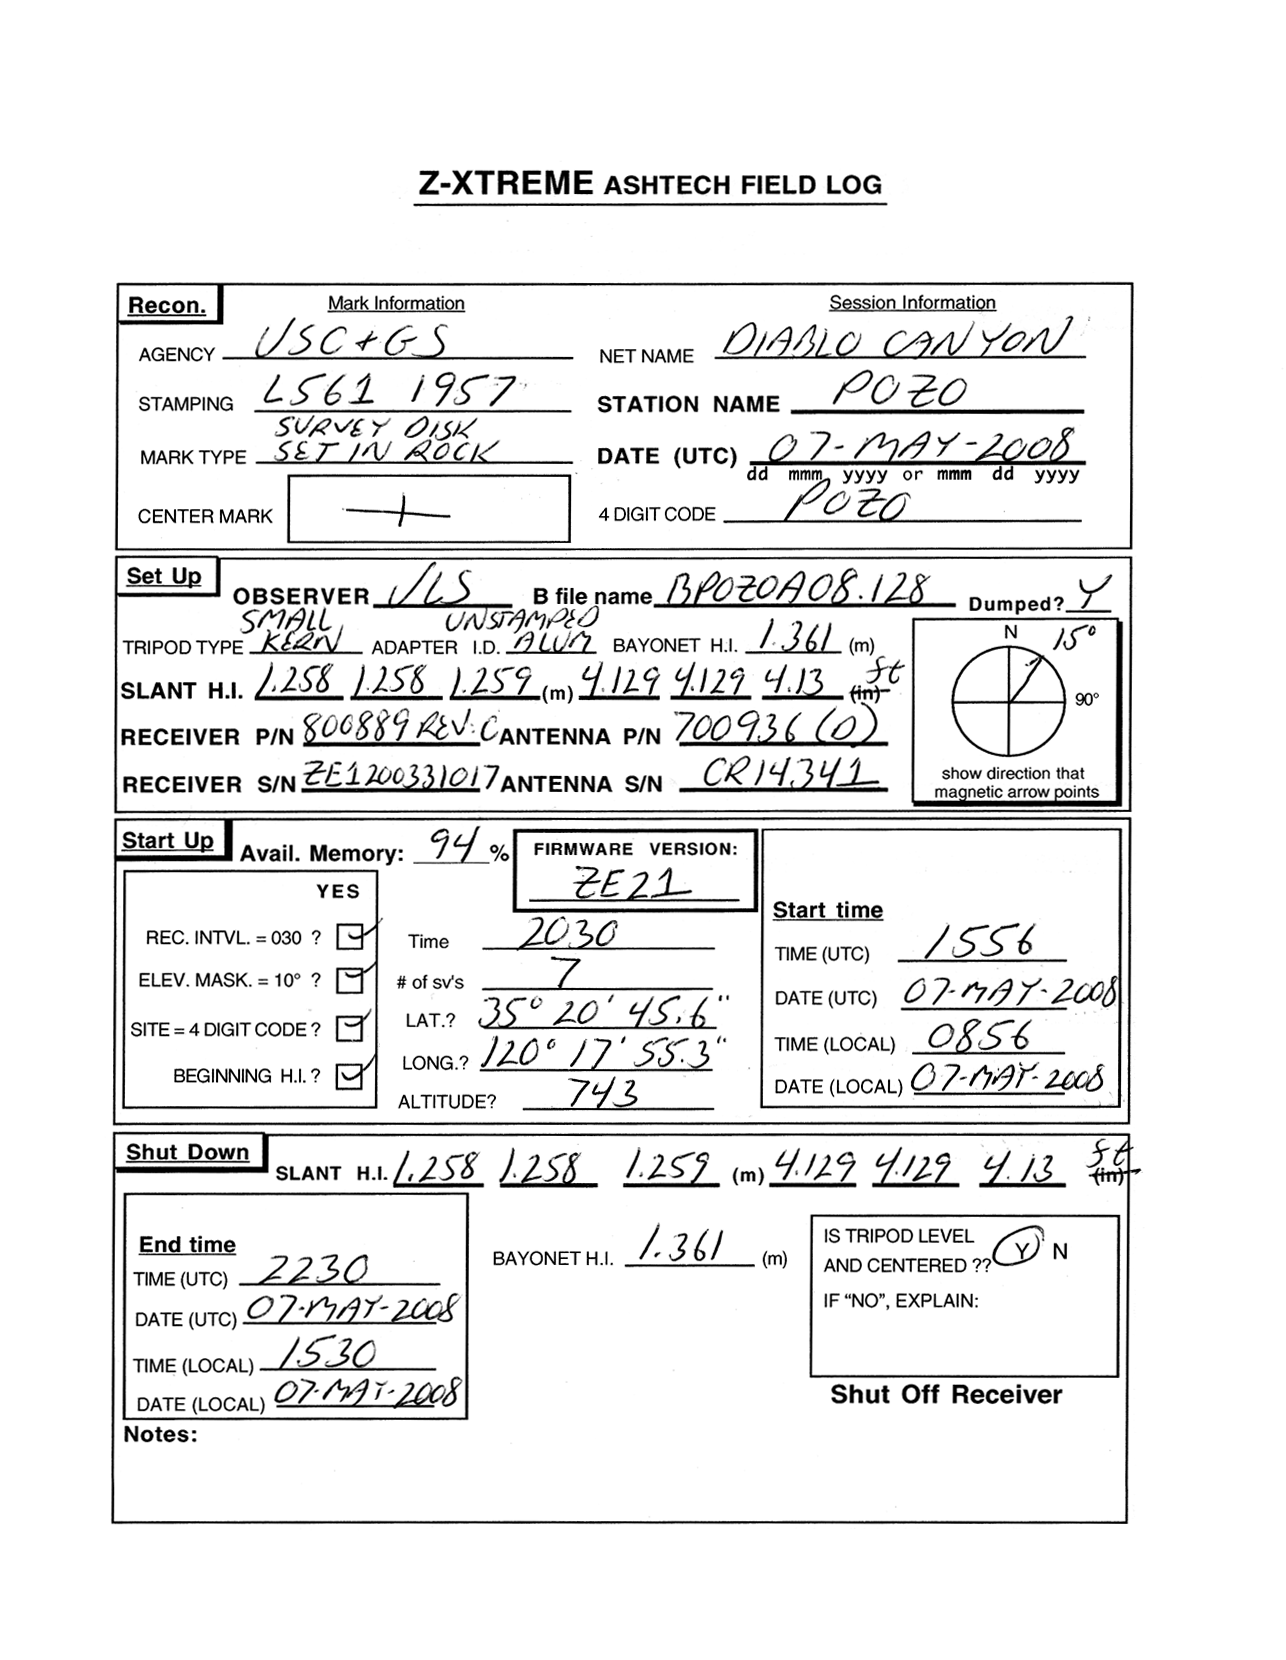 Z-XTREME ASHTECH FIELD LOG
Recon. Mark Information Session Information
AGENCY USC+GS NET NAME DIABLO CANYON
STAMPING L561 1957 STATION NAME POZO
SURVEY DISK
MARK TYPE SET IN ROCK DATE (UTC) 07-MAY-2008
dd mmm yyyy or mmm dd yyyy
CENTER MARK 4 DIGIT CODE POZO
Set Up OBSERVER JLS B file name BPOZOA08.128 Dumped? Y
SMALL UNSTAMPED
TRIPOD TYPE KERN ADAPTER I.D. ALUM BAYONET H.I. 1.361 (m)
N 15°
SLANT H.I. 1.258 1.258 1.259 (m) 4.129 4.129 4.13 (in) ft
90°
RECEIVER P/N 800889 REV. C ANTENNA P/N 700936 (D)
RECEIVER S/N ZE1200331017 ANTENNA S/N CR14341
show direction that
magnetic arrow points
Start Up Avail. Memory: 94 % FIRMWARE VERSION:
ZE21
YES
REC. INTVL. = 030 ?
ELEV. MASK. = 10° ?
SITE = 4 DIGIT CODE ?
BEGINNING H.I. ?
Time 2030
# of sv's 7
LAT.? 35° 20' 45.6"
LONG.? 120° 17' 55.3"
ALTITUDE? 743
Start time
TIME (UTC) 1556
DATE (UTC) 07-MAY-2008
TIME (LOCAL) 0856
DATE (LOCAL) 07-MAY-2008
Shut Down SLANT H.I. 1.258 1.258 1.259 (m) 4.129 4.129 4.13 (in) ft
End time
TIME (UTC) 2230
DATE (UTC) 07-MAY-2008
TIME (LOCAL) 1530
DATE (LOCAL) 07-MAY-2008
BAYONET H.I. 1.361 (m)
IS TRIPOD LEVEL
AND CENTERED ?? Y N
IF “NO”, EXPLAIN:
Shut Off Receiver
Notes: